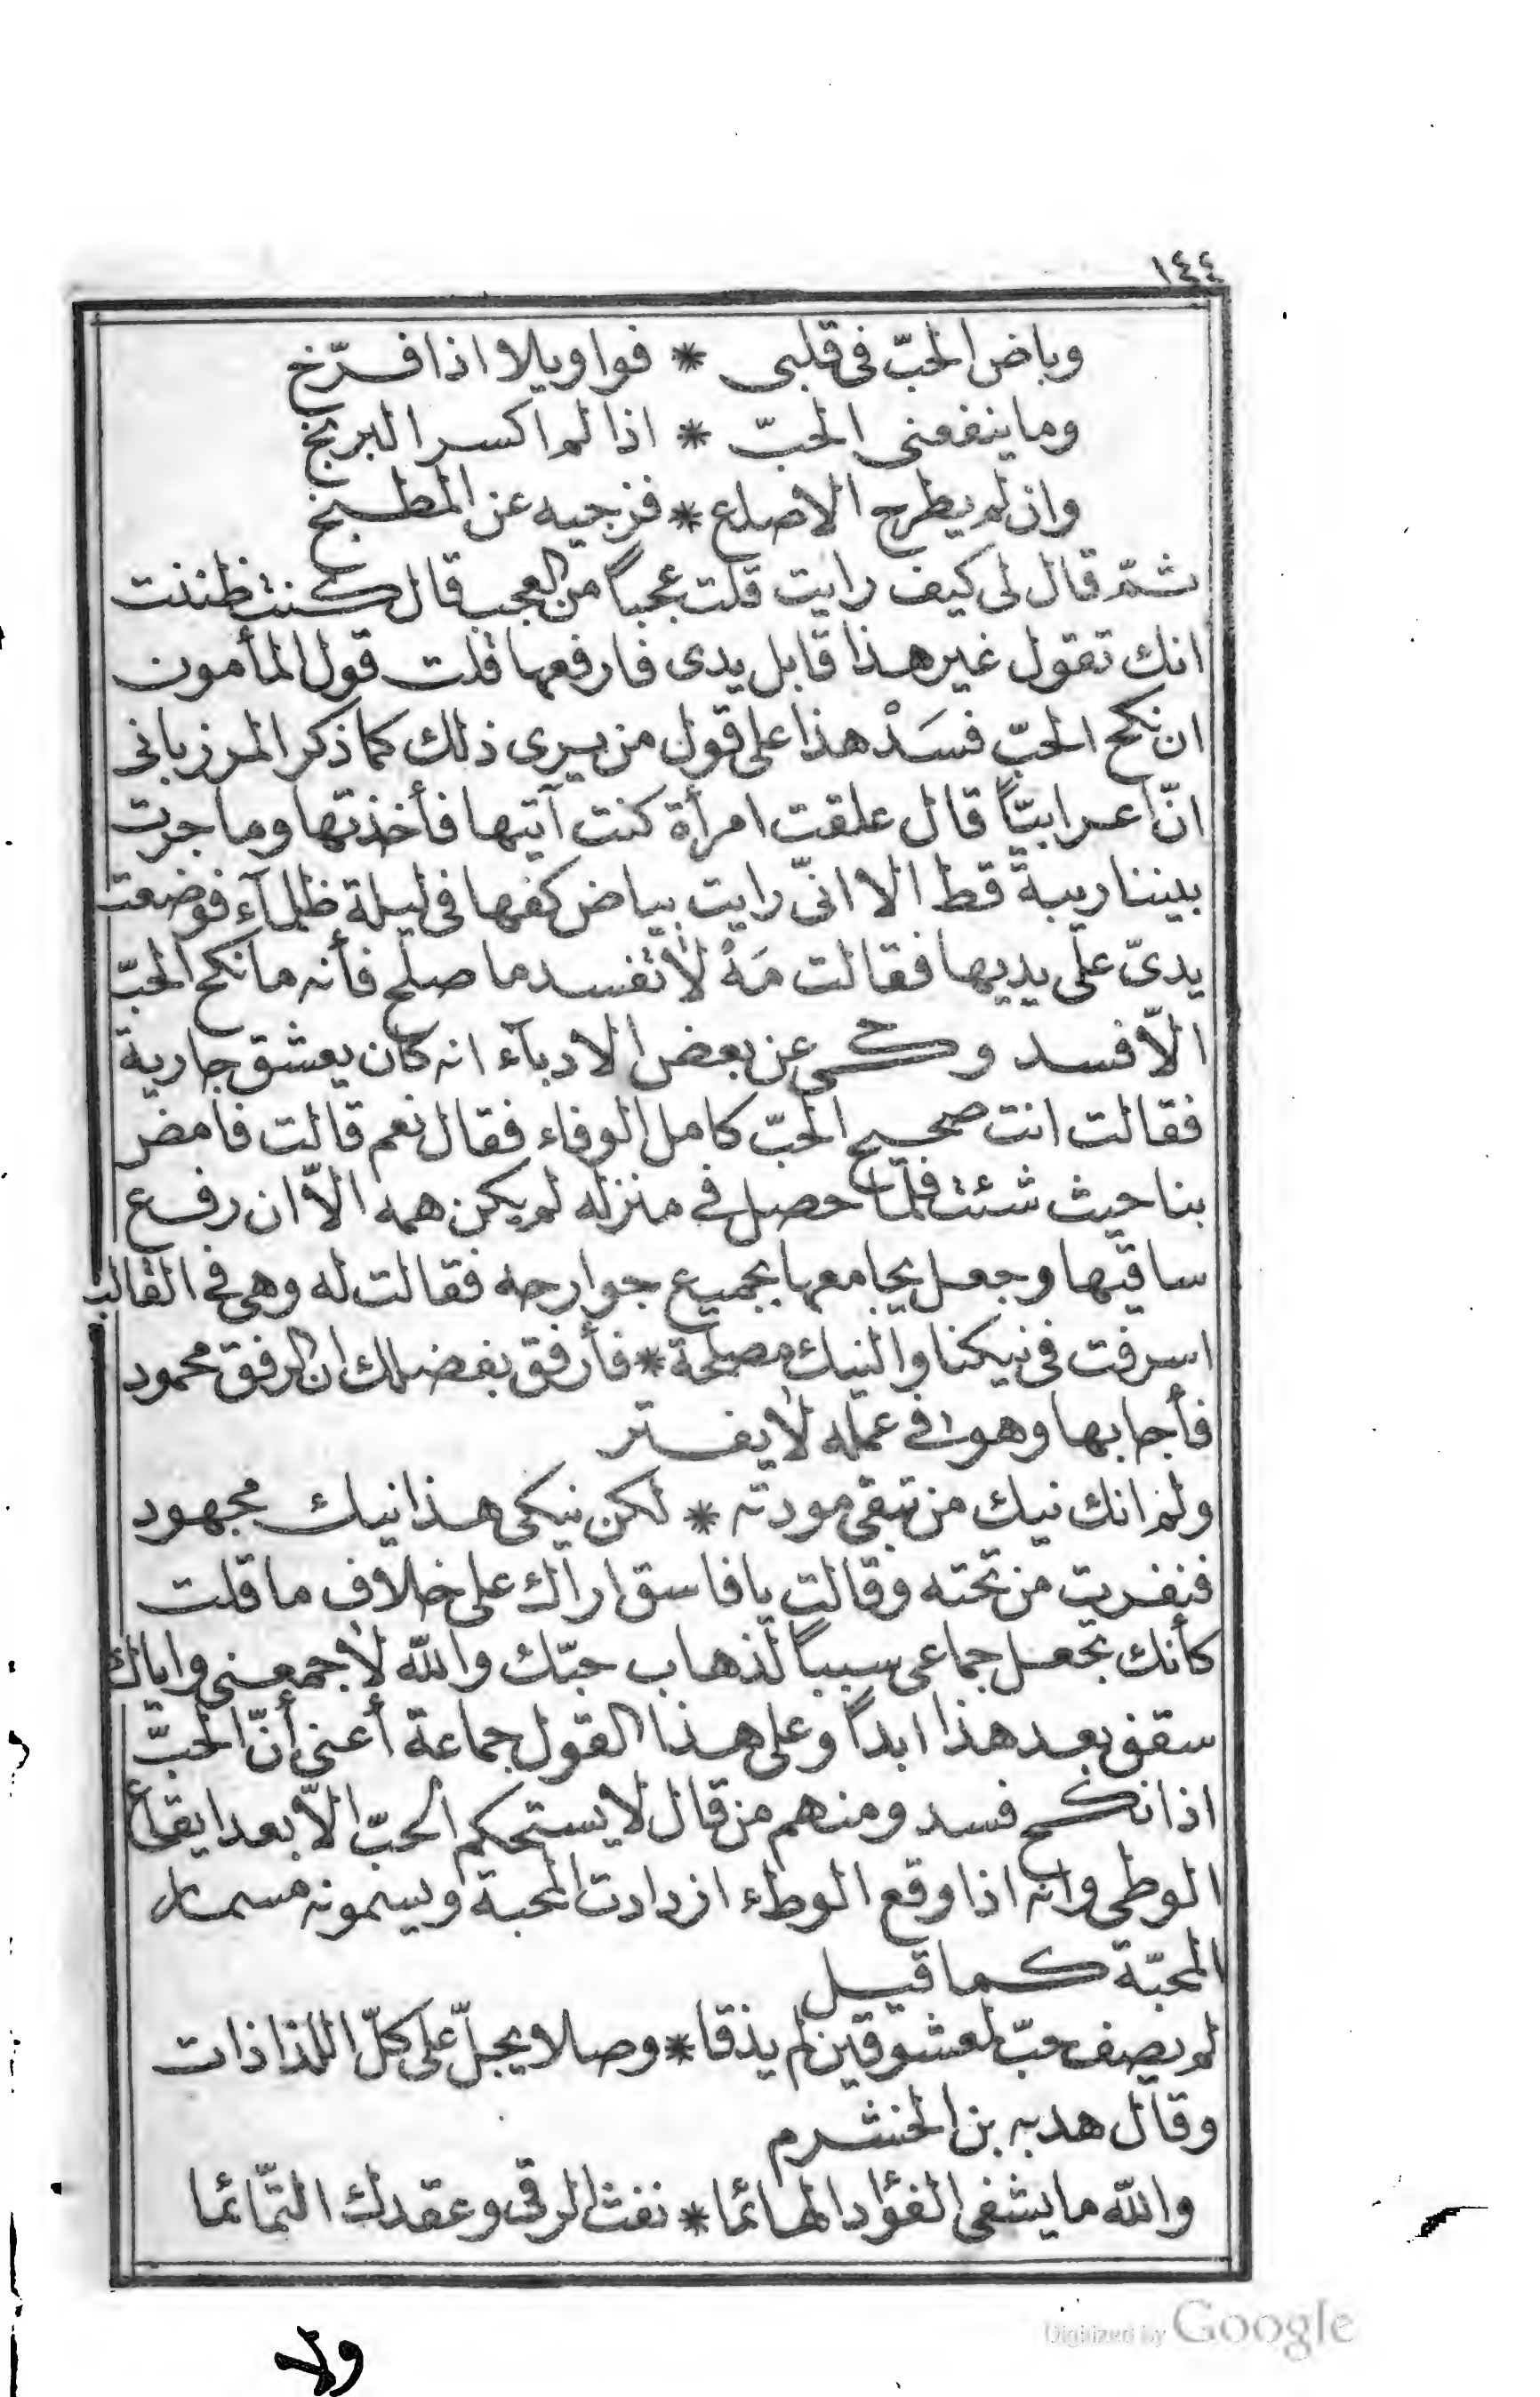 ١٤٤
وباض الحبّ فى قلبى * فوا ويلا اذا فرّخ
وما ينفعنى الحبّ * اذا لم اكسر البربخ
وان لم يطرح الاصلع * فزجيه عن المطبخ
ثمّ قال لى كيف رايت قلت عجباً من العجب قال كنت ظننت
انك تقول غير هذا قابل يدى فارفعها قلت قول المأمون
ان نكح الحبّ فسَدْ هذا على قول من يرى ذلك كما ذكر المرزبانى
انّ اعرابيّاً قال علقت امرأة كنت آتيها فأخذتها وما جرت
بيننا ريبة قط الا انّى رايت بياض كفها فى ليلة ظلمآء فوضعت
يدىّ على يديها فقالت مَهْ لا تفسد ما صلح فأنه ما نكح الحبّ
الاّ فسد وحكى عن بعض الادبآء انه كان يعشق جارية
فقالت انت صحيح الحبّ كامل الوفاء فقال نعم قالت فامض
بنا حيث شئت فلمّا حصل فى منزله لم يكن همه الاّ ان رفع
ساقيها وجعل يجامعها بجميع جوارحه فقالت له وهى فى القالب
اسرفت فى نيكنا والنيك مصلحة * فأرفق بفضلك ان الرفق محمود
فأجابها وهو فى عمله لا يفتر
ولم انك نيك من تبقى مودته * لكن نيكى هذا نيك مجهود
فنفرت من تحته وقالت يا فاسق اراك على خلاف ما قلت
كأنك تجعل جماعى سبباً لذهاب حبّك والله لا جمعنى واياك
سقف بعد هذا ابداً وعلى هذا القول جماعة أعنى أنّ الحبّ
اذا نكح فسد ومنهم من قال لا يستحكم الحبّ الاّ بعد ايقاع
الوطى وانه اذا وقع الوطء ازدادت المحبة ويسمونه مسمار
المحبّة كما قيل
لم يصف حبّ لمعشوقين لم يذقا * وصالا يجلّ على كلّ اللذاذات
وقال هدبه بن الخشرم
والله ما يشفى الفؤاد الهائما * نفث الرقى وعقدك التّمائما
ولا
Digitized by Google